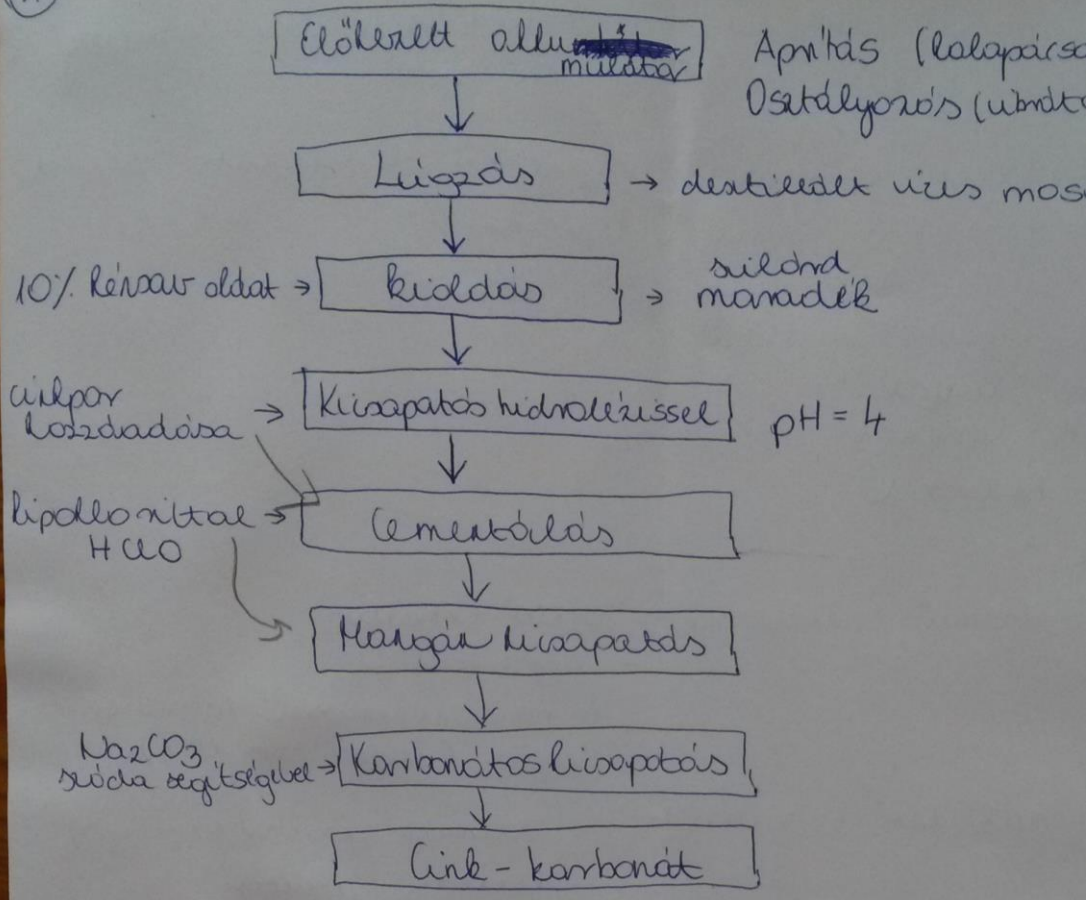 Előkezelt akku
mulátor
Aprítás (kalapács
Osztályozás (vibrát
Lúgzás → desztillált vizes mos
10% kénsav oldat → kioldás → szilárd
maradék
cinkpor
hozzáadása → Kicsapatás hidrolízissel pH = 4
hipokloxittal → Cementálás
HClO
Mangán kicsapatás
Na2CO3
szóda segítségével → Karbonátos kicsapatás
Cink - karbonát